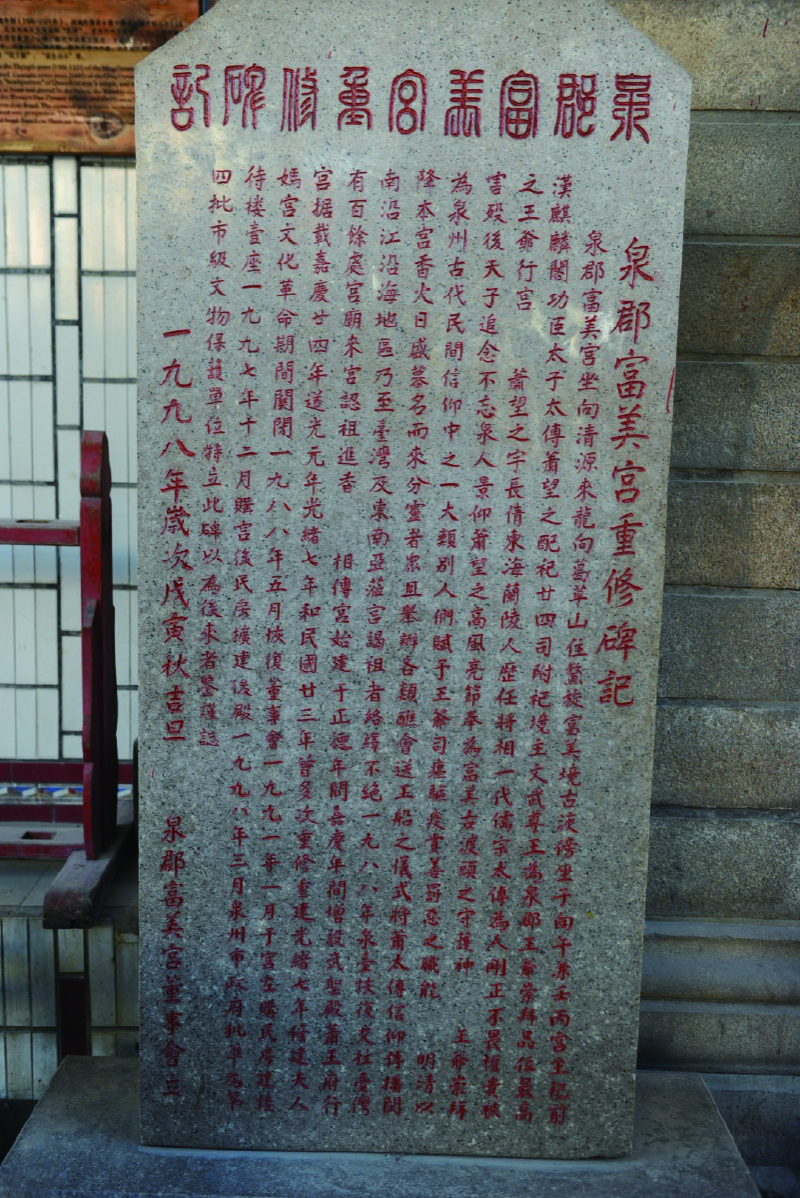 泉郡富美宮重修碑記
泉郡富美宮重修碑記
泉郡富美宮坐向清源來龍向葛萃山住鰲旋富美境古渡傍坐子向午兼壬丙宮主祀前
漢麒麟閣功臣太子太傅蕭望之配祀廿四司附祀境主文武尊王為泉郡王爺崇拜品位最高
之王爺行宮 蕭望之字長倩東海蘭陵人歷任將相一代儒宗太傅為人剛正不畏權貴被
害歿後天子追念不忘泉人景仰蕭望之高風亮節奉為富美古渡頭之守護神 王爺崇拜
為泉州古代民間信仰中之一大類別人們賦予王爺司瘟驅疫賞善罰惡之職能 明清以
降本宮香火日盛慕名而來分靈者眾且舉辦各類醮會送王船之儀式將蕭太傅信仰傳播閩
南沿江沿海地區乃至臺灣及東南亞蒞宮謁祖者絡繹不絕一九八八年泉臺恢復交往臺灣
有百餘處宮廟來宮認祖進香 相傳宮始建于正德年間嘉慶年間增設武聖殿蕭王府行
宮据載嘉慶廿四年道光元年光緒七年和民國廿三年曾多次重修重建光緒七年修建夫人
媽宮文化革命期間關閉一九八八年五月恢復董事會一九九一年一月于宮左購民房建接
待楼壹座一九九七年十二月購宮後民房擴建後殿一九九八年三月泉州市政府批準為第
四批市級文物保護單位特立此碑以為後來者鑒謹誌
一九九八年歲次戊寅秋吉旦 泉郡富美宮董事會立